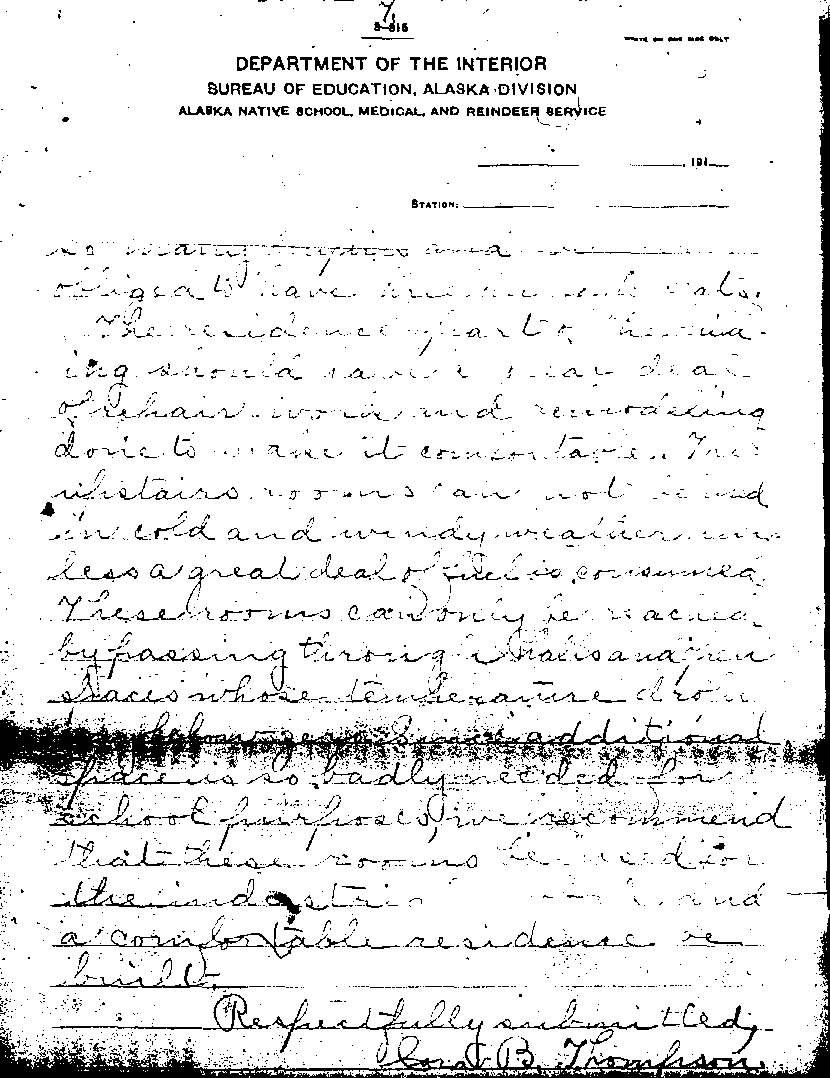 7
8-815
WRITE ON ONE SIDE ONLY
DEPARTMENT OF THE INTERIOR
BUREAU OF EDUCATION, ALASKA DIVISION
ALASKA NATIVE SCHOOL, MEDICAL, AND REINDEER SERVICE
, 191
STATION:
so many and
obliged to have
The residence part of the
ing should have a great deal
of repair work and remodeling
done to make it comfortable. The
upstairs rooms can not be used
in cold and windy weather un-
less a great deal of fuel is consumed.
These rooms can only be reached
by passing through halls and open
spaces whose temperature drops
below zero. Since additional
space is so badly needed for
school purposes, we recommend
that these rooms be used for
the and
a comfortable residence be
built.
Respectfully submitted,
B. Thompson.